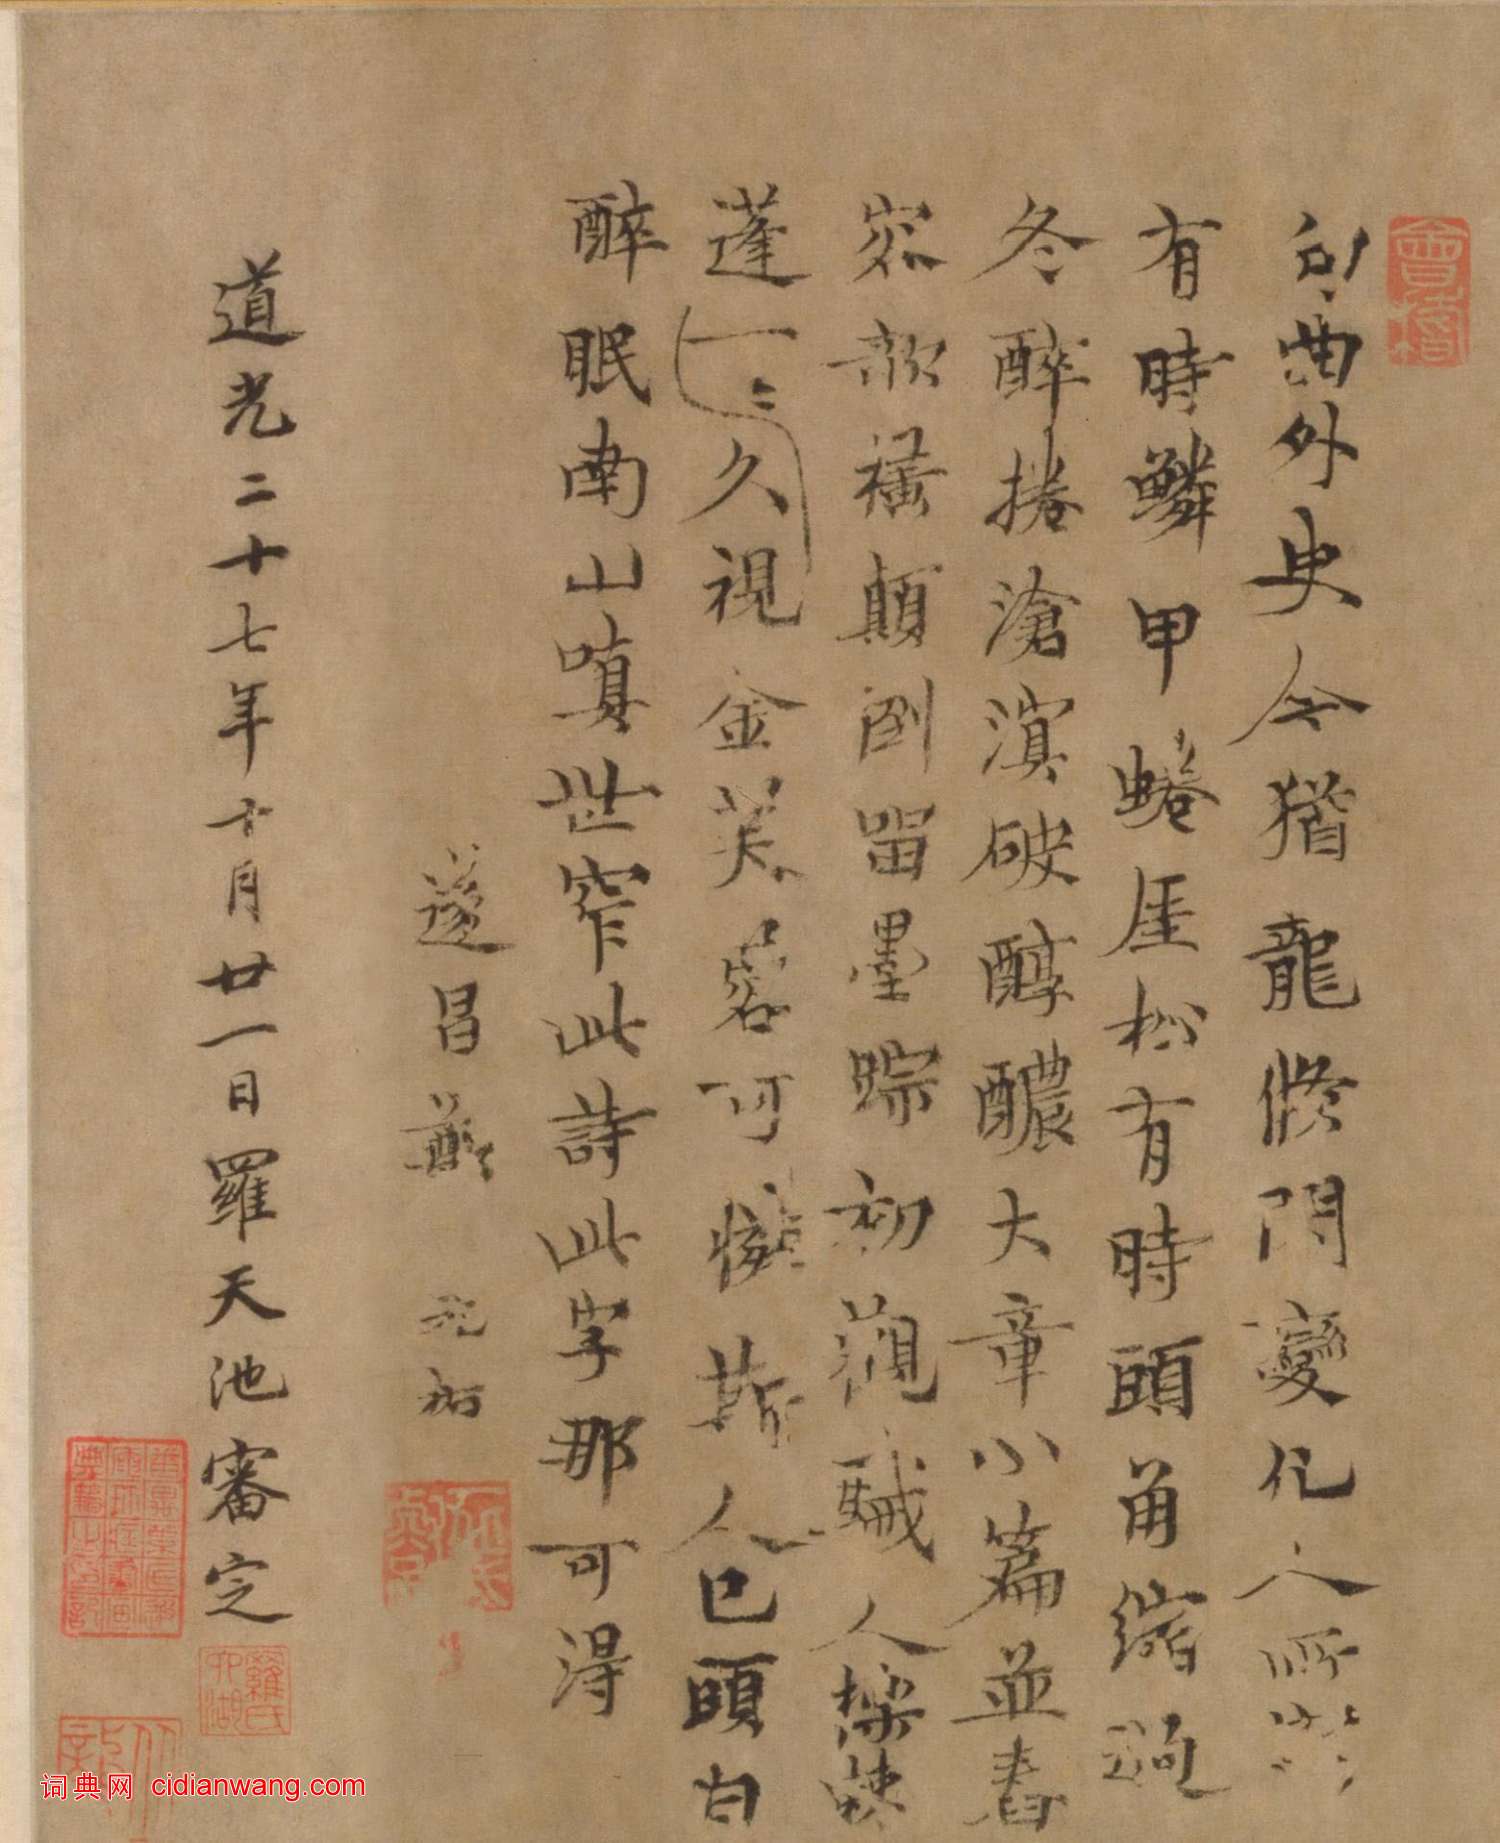 句曲外史今猶龍倏閃變化人所
有時鱗甲蜷厓松有時頭角縮
冬醉捲滄溟破醇醲大章小篇並舂
欹橫顛倒留墨踪初觀駴人
蓬一二久視金芙蓉可憐斯人已頭白
醉眠南山嗔世窄此詩此字那可得
遂昌鄭元祐
道光二十七年十月廿一日羅天池審定
羅氏六湖
词典网 cidianwang.com